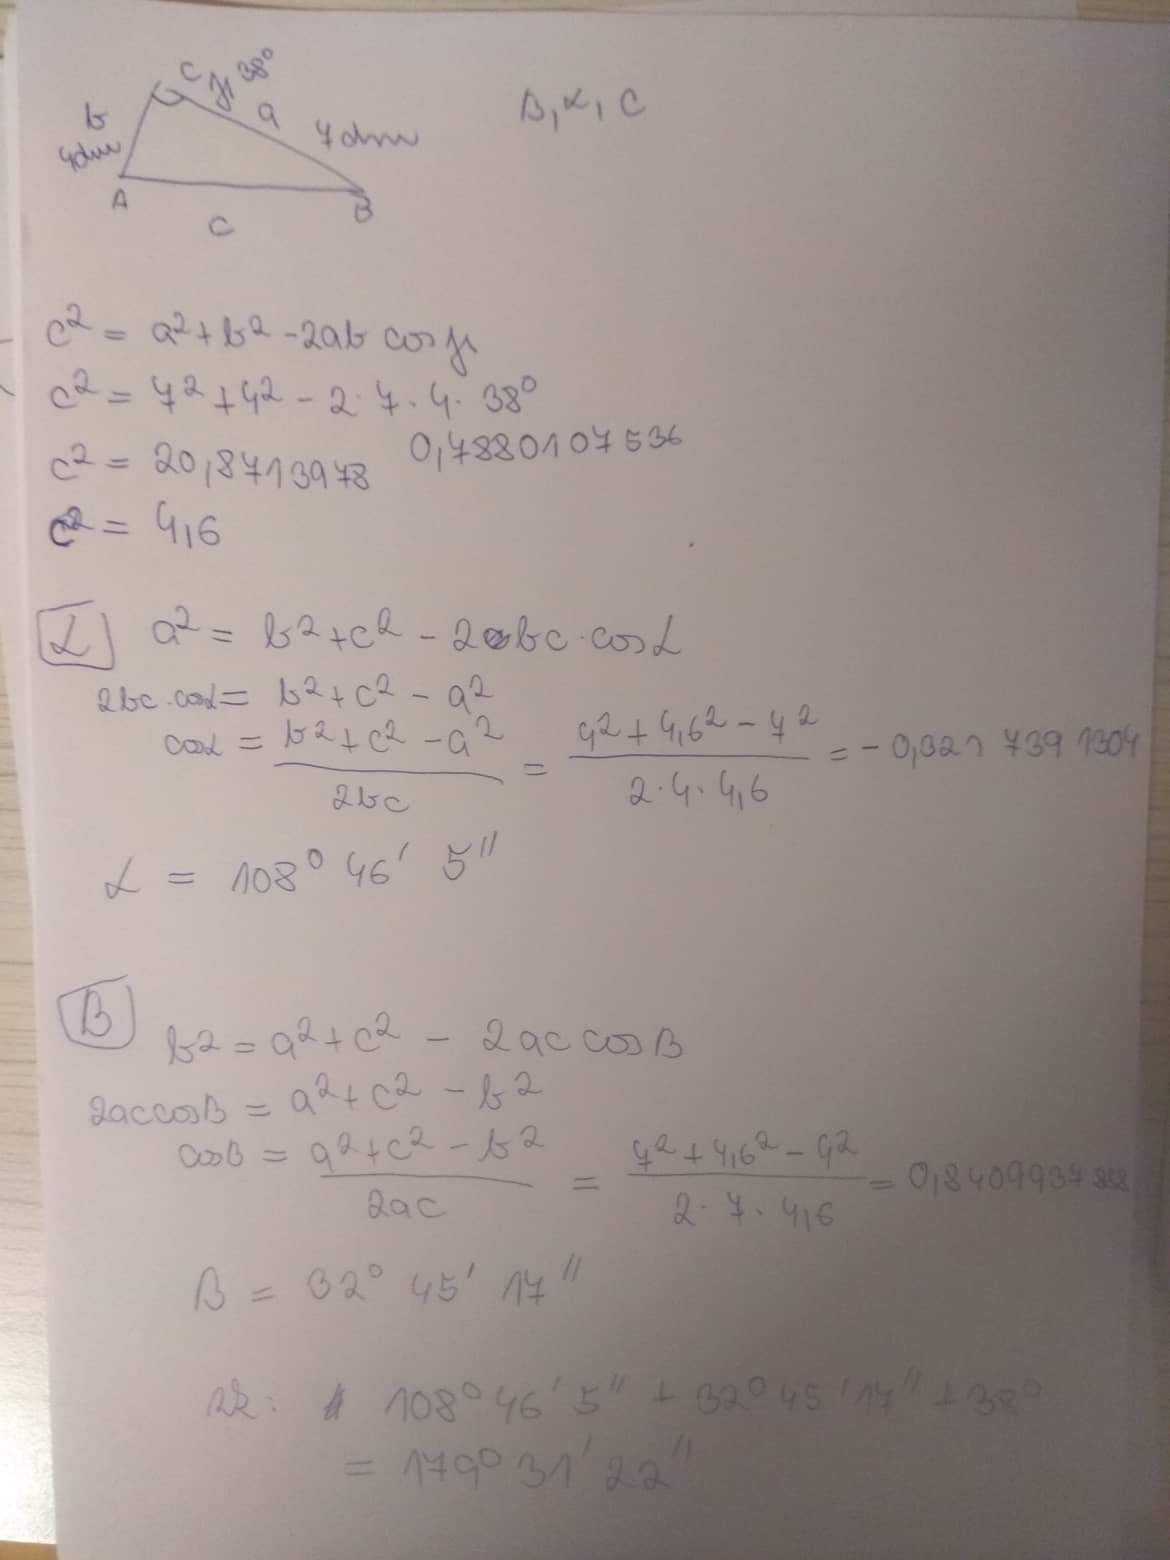 C γ 38°
b a
4dm 7dm
A B
c
β, α, c
c² = a² + b² - 2ab cos γ
c² = 7² + 4² - 2·7·4· 38°
0,7880107536
c² = 20,8713978
c² = 4,6
α a² = b² + c² - 2bc·cosα
2bc·cosα = b² + c² - a²
cosα = b² + c² - a² / 2bc = 4² + 4,6² - 7² / 2·4·4,6 = -0,3217391304
α = 108° 46' 5''
β
b² = a² + c² - 2ac cosβ
2ac cosβ = a² + c² - b²
cosβ = a² + c² - b² / 2ac = 7² + 4,6² - 4² / 2·7·4,6 = 0,8409937888
β = 32° 45' 17''
zk: 108° 46' 5'' + 32° 45' 17'' + 38°
= 179° 31' 22''